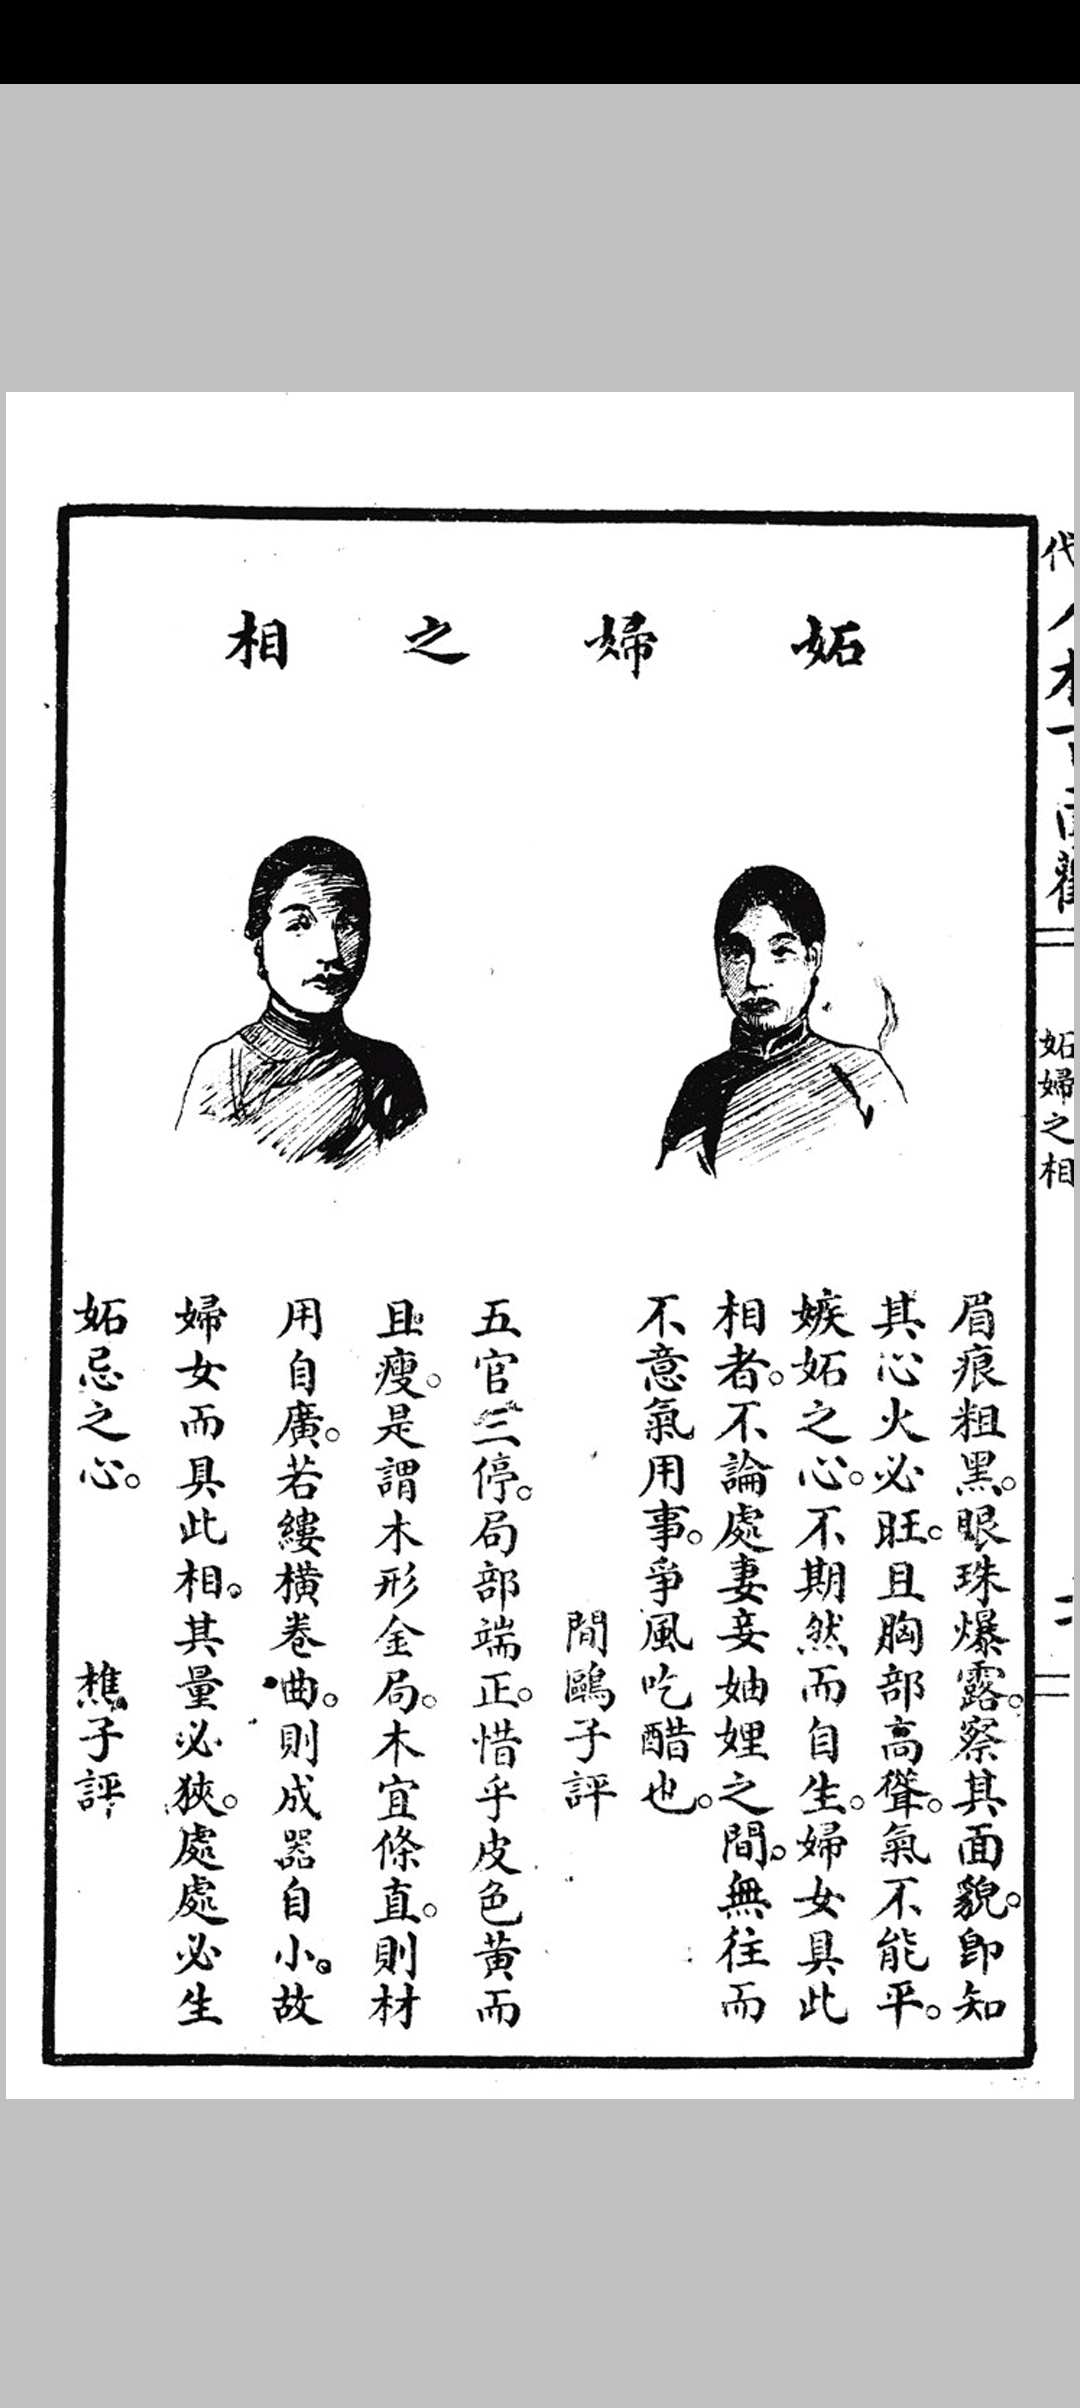 妬婦之相
妬婦之相
眉痕粗黑。眼珠爆露。察其面貌。即知
其心火必旺。且胸部高聳。氣不能平。
嫉妬之心。不期然而自生。婦女具此
相者。不論處妻妾妯娌之間。無往而
不意氣用事。爭風吃醋也。
間鷗子評
五官三停。局部端正。惜乎皮色黃而
且瘦。是謂木形金局。木宜條直。則材
用自廣。若縷橫卷曲。則成器自小。故
婦女而具此相。其量必狹。處處必生
妬忌之心。
樵子評